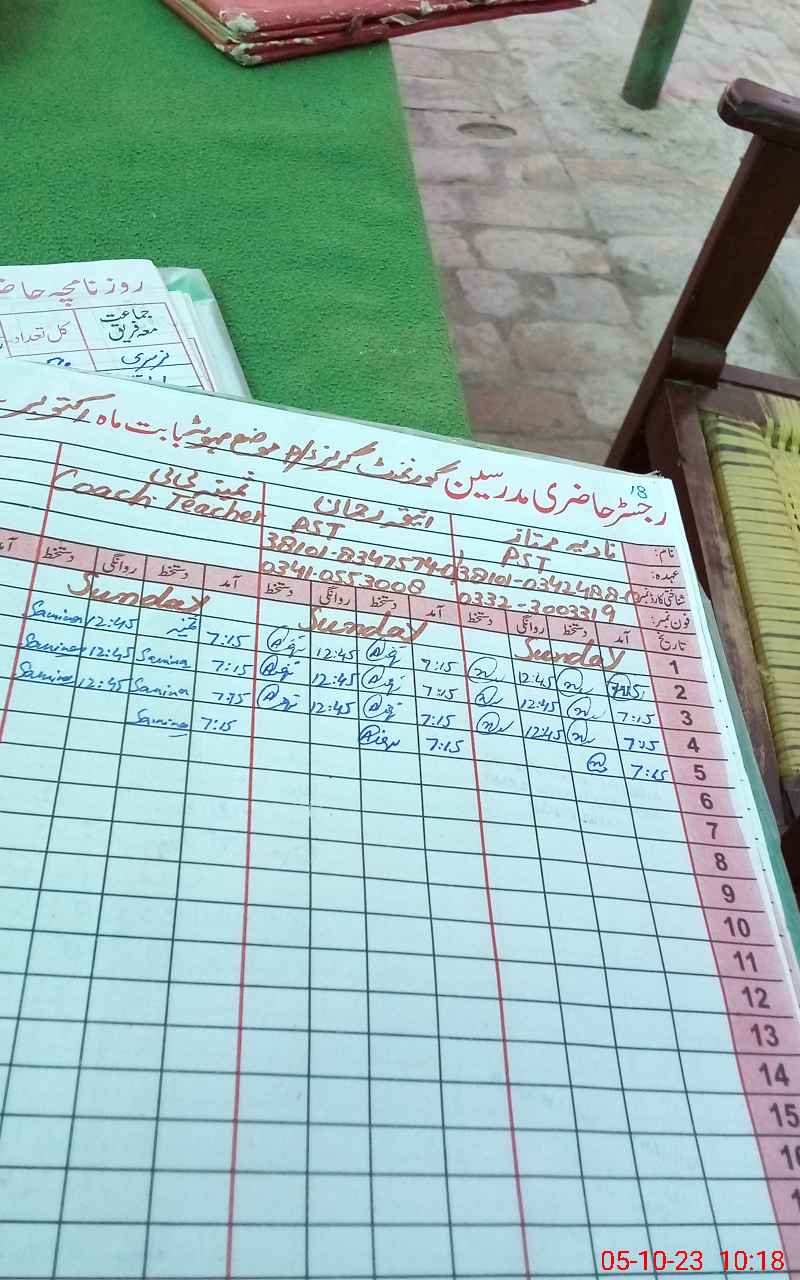 روزنامچہ حا
جماعت معہ فریق
کل تعداد
نرسری
18
رجسٹر حاضری مدرسین گورنمنٹ گرلز موضع بابت ماہ اکتوبر
نام: نادیہ ممتاز انیقہ رحمان ثمینہ بی بی
عہدہ: PST PST Coach Teacher
شناختی کارڈ نمبر 38101-0342488- 38101-8347574-0
فون نمبر: 0332-3003319 0341-0553008
تاریخ آمد دستخط روانگی دستخط آمد دستخط روانگی دستخط آمد دستخط روانگی دستخط آمد
1 Sunday Sunday Sunday
2 7:15 12:45 7:15 12:45 7:15 ثمینہ 12:45 Samina
3 7:15 12:45 7:15 12:45 7:15 Samina 12:45 Samina
4 7:15 12:45 7:15 12:45 7:15 Samina 12:45 Samina
5 7:15 7:15 7:15 Samina
6
7
8
9
10
11
12
13
14
15
16
05-10-23 10:18